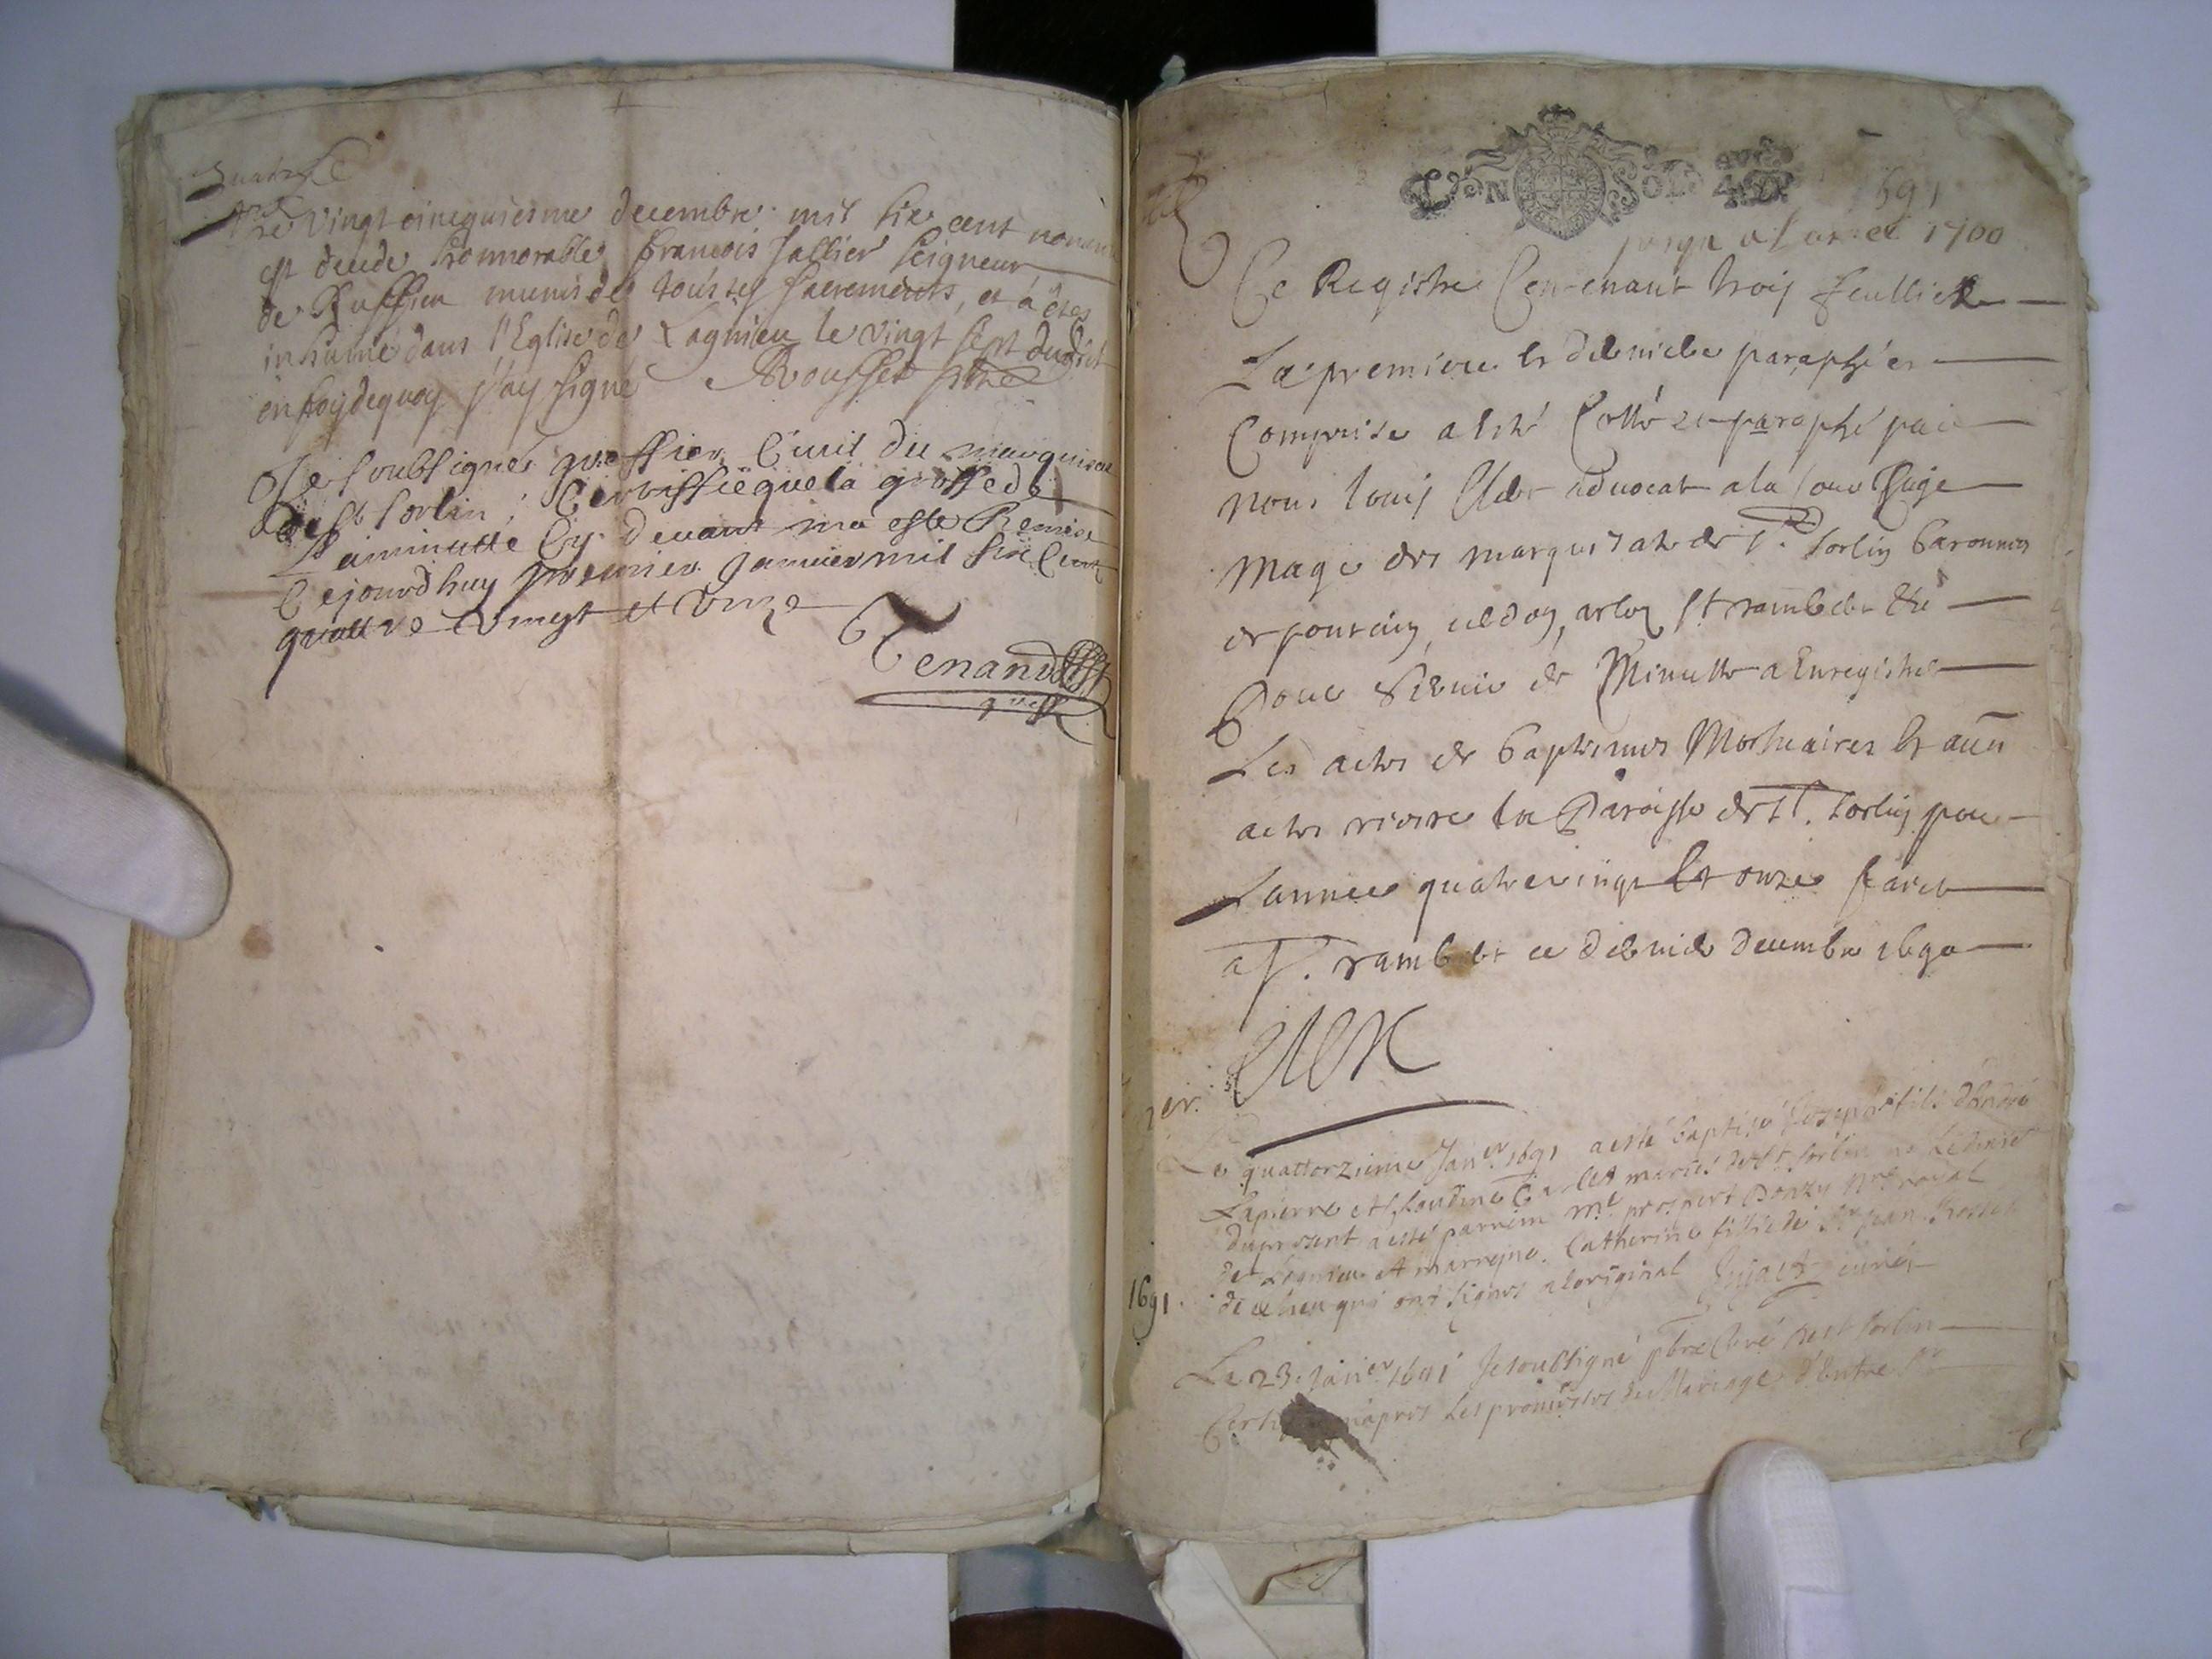 quatre
Le vingt cinequiesme decembre mil six cent nonante
est decedé honnorable francois Jallier Seigneur
de Ruffieu munis de tous ses sacrements, et a étés
inhumé dans l'Eglise de Lagnieu le vingt sept dudict
en foy dequoy j'ay signé Rousset ptre
Je soubsigné greffier Civil du marquisat
de St Sorlin, Certiffie que la grosse de
La minutte Cy devant ma esté Remise
Cejourdhuy premier Janvier mil six Cent
quattre vingt et unze
Tenand
1691
jusqu a l'année 1700
Ce Registre Contenant trois feullietz
La premiere et derniere paraphées
Comprise a esté Cotté et paraphé par
nous Louis advocat a la Cour Juge
Mage des marquisat de St. Sorlin baronnies
de poncin, cerdon, arloz St rambert &c
Pour servir de Minutte a Enregistrer
Les actes de baptemes Mortuaires et aūū
actes riere la Paroisse de St. Sorlin pour
Lannee quatrevingt et onze faict
a St. rambert ce dernier decembre 1690
1er.
Le quattorzieme Janer 1691 a esté baptisé Joseph fils d'André
Lapierre et Claudine mariés de St Sorlin
du present a esté parrein Me prospert Donzy Nre royal
de Lagnieu et marreyne Catherine fillie de Sr Jean Rosset
de ce lieu qui ont signés a l'original curé
1691.
Le 23. Janer 1691 Je soubsigné pbre Curé de St Sorlin
qu'apres Les promesses de Mariage d'Entre Sr